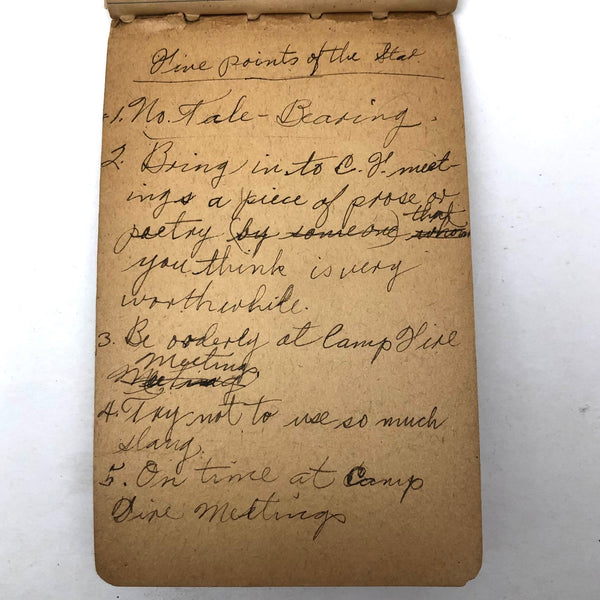 Five points of the Star
1. No. Tale-Bearing.
2. Bring in to C. F. meet-
ings a piece of prose or
that
poetry (by someone) whom
you think is very
worthwhile.
3. Be orderly at Camp Fire
Meeting
Meetings
4. Try not to use so much
slang.
5. On time at Camp
Fire Meetings